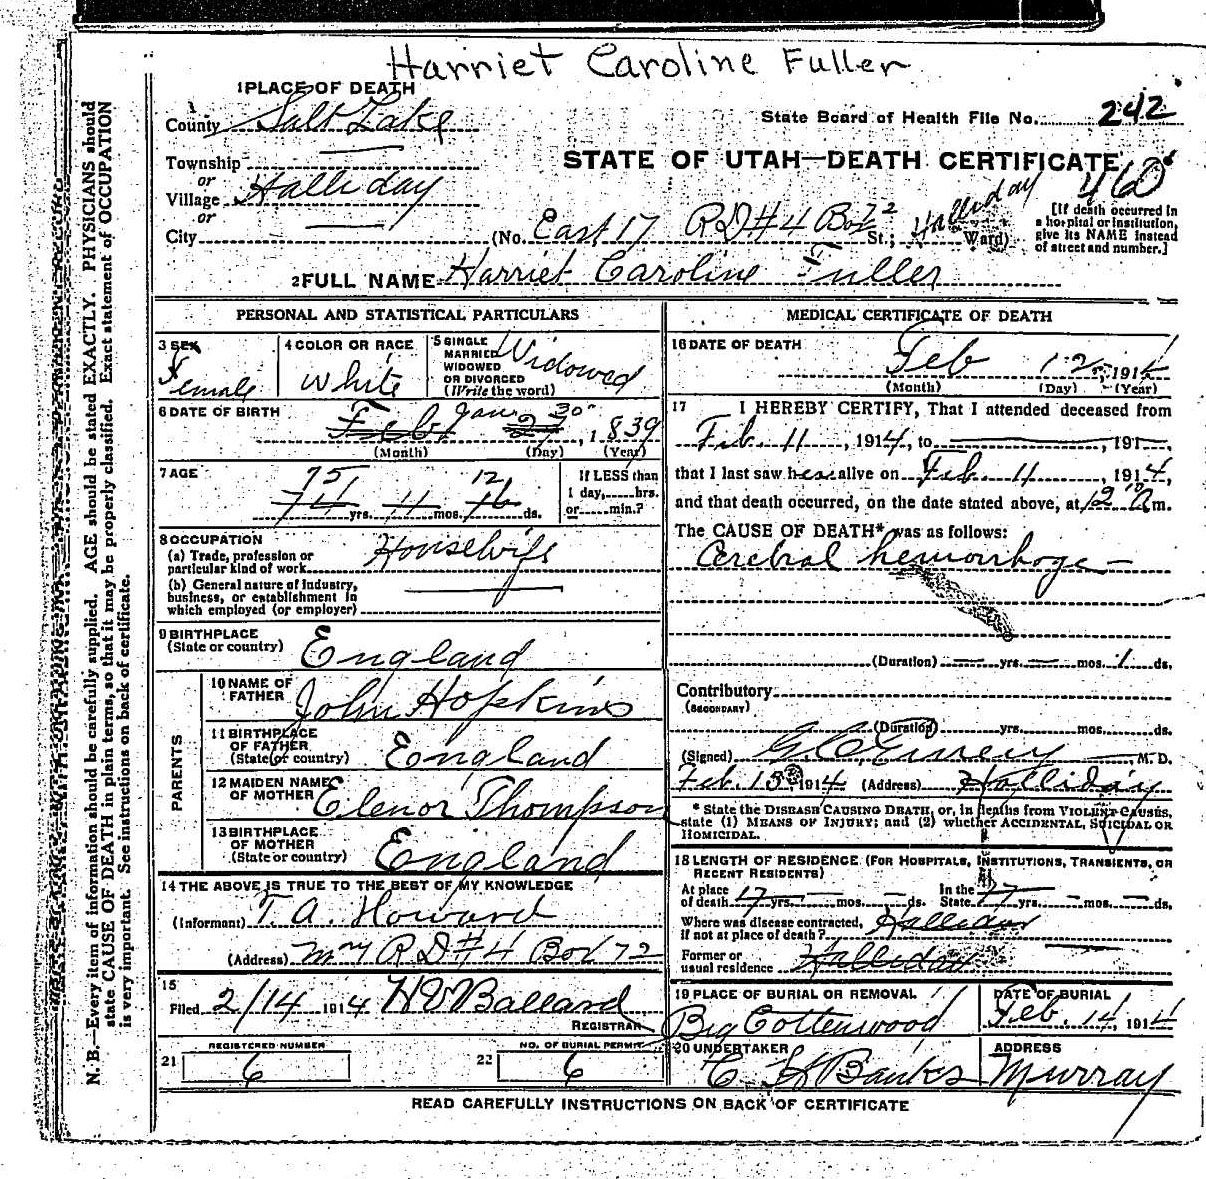 Harriet Caroline Fuller
1 PLACE OF DEATH
County Salt Lake
State Board of Health File No. 242
Township
STATE OF UTAH—DEATH CERTIFICATE
460
or
Village Halliday
or
City
(No. East 17 RD#4 Box 72 St.; Halliday Ward)
[If death occurred in
a hospital or institution,
give its NAME instead
of street and number.]
2 FULL NAME Harriet Caroline Fuller
PERSONAL AND STATISTICAL PARTICULARS
3 SEX
Female
4 COLOR OR RACE
White
5 SINGLE
MARRIED
WIDOWED
OR DIVORCED
(Write the word)
Widowed
6 DATE OF BIRTH
Feb Jan 27 30, 1839
(Month) (Day) (Year)
7 AGE
75 12
74 yrs. 11 mos. 16 ds.
If LESS than
1 day, hrs.
or min.?
8 OCCUPATION
(a) Trade, profession or
particular kind of work Housewife
(b) General nature of Industry,
business, or establishment in
which employed (or employer)
9 BIRTHPLACE
(State or country) England
PARENTS
10 NAME OF
FATHER John Hopkins
11 BIRTHPLACE
OF FATHER
(State or country) England
12 MAIDEN NAME
OF MOTHER Elenor Thompson
13 BIRTHPLACE
OF MOTHER
(State or country) England
14 THE ABOVE IS TRUE TO THE BEST OF MY KNOWLEDGE
(Informant) T. A. Howard
(Address) RD#4 Box 72
15
Filed 2/14 1914 H V Ballard
REGISTRAR
21 REGISTERED NUMBER
6
22 NO. OF BURIAL PERMIT
6
MEDICAL CERTIFICATE OF DEATH
16 DATE OF DEATH
Feb 12, 1914
(Month) (Day) (Year)
17 I HEREBY CERTIFY, That I attended deceased from
Feb. 11, 1914, to , 191
that I last saw her alive on Feb. 11, 1914,
and that death occurred, on the date stated above, at 12 m.
The CAUSE OF DEATH* was as follows:
Cerebral hemorrhage
(Duration) yrs. mos. 1 ds.
Contributory
(SECONDARY)
(Duration) yrs. mos. ds.
(Signed) M. D.
Feb. 13 1914 (Address) Halliday
* State the DISEASE CAUSING DEATH, or, in deaths from VIOLENT CAUSES,
state (1) MEANS OF INJURY; and (2) whether ACCIDENTAL, SUICIDAL OR
HOMICIDAL.
18 LENGTH OF RESIDENCE (FOR HOSPITALS, INSTITUTIONS, TRANSIENTS, OR
RECENT RESIDENTS)
At place
of death 17 yrs. mos. ds.
In the
State 17 yrs. mos. ds.
Where was disease contracted,
if not at place of death? Halliday
Former or
usual residence Halliday
19 PLACE OF BURIAL OR REMOVAL
Big Cottenwood
DATE OF BURIAL
Feb. 14, 1914
20 UNDERTAKER
C H Banks
ADDRESS
Murray
READ CAREFULLY INSTRUCTIONS ON BACK OF CERTIFICATE
N. B.—Every item of information should be carefully supplied. AGE should be stated EXACTLY. PHYSICIANS should
state CAUSE OF DEATH in plain terms, so that it may be properly classified. Exact statement of OCCUPATION
is very important. See instructions on back of certificate.